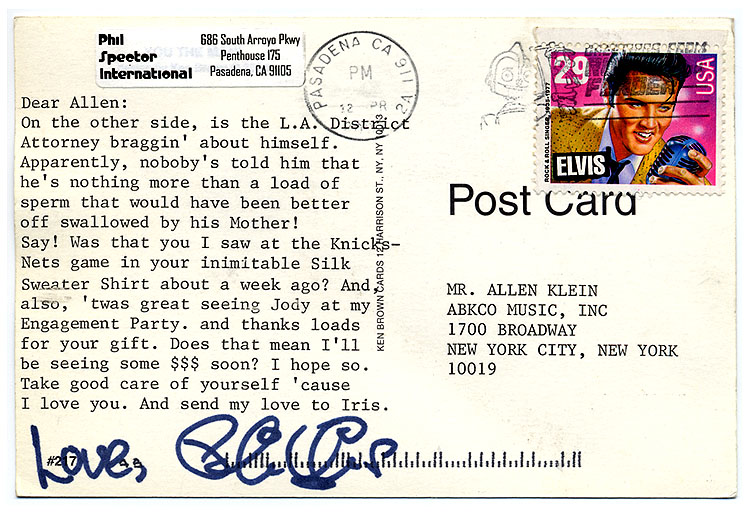 Phil
Spector
International
686 South Arroyo Pkwy
Penthouse 175
Pasadena, CA 91105
PASADENA CA 911
PM
12 PR
29
USA
ELVIS
ROCK & ROLL SINGER, 1935-1977
Dear Allen:
On the other side, is the L.A. District
Attorney braggin' about himself.
Apparently, noboby's told him that
he's nothing more than a load of
sperm that would have been better
off swallowed by his Mother!
Say! Was that you I saw at the Knicks-
Nets game in your inimitable Silk
Sweater Shirt about a week ago? And,
also, 'twas great seeing Jody at my
Engagement Party. and thanks loads
for your gift. Does that mean I'll
be seeing some $$$ soon? I hope so.
Take good care of yourself 'cause
I love you. And send my love to Iris.
KEN BROWN CARDS 12 HARRISON ST., NY, NY 10013
Post Card
MR. ALLEN KLEIN
ABKCO MUSIC, INC
1700 BROADWAY
NEW YORK CITY, NEW YORK
10019
Love,
#217